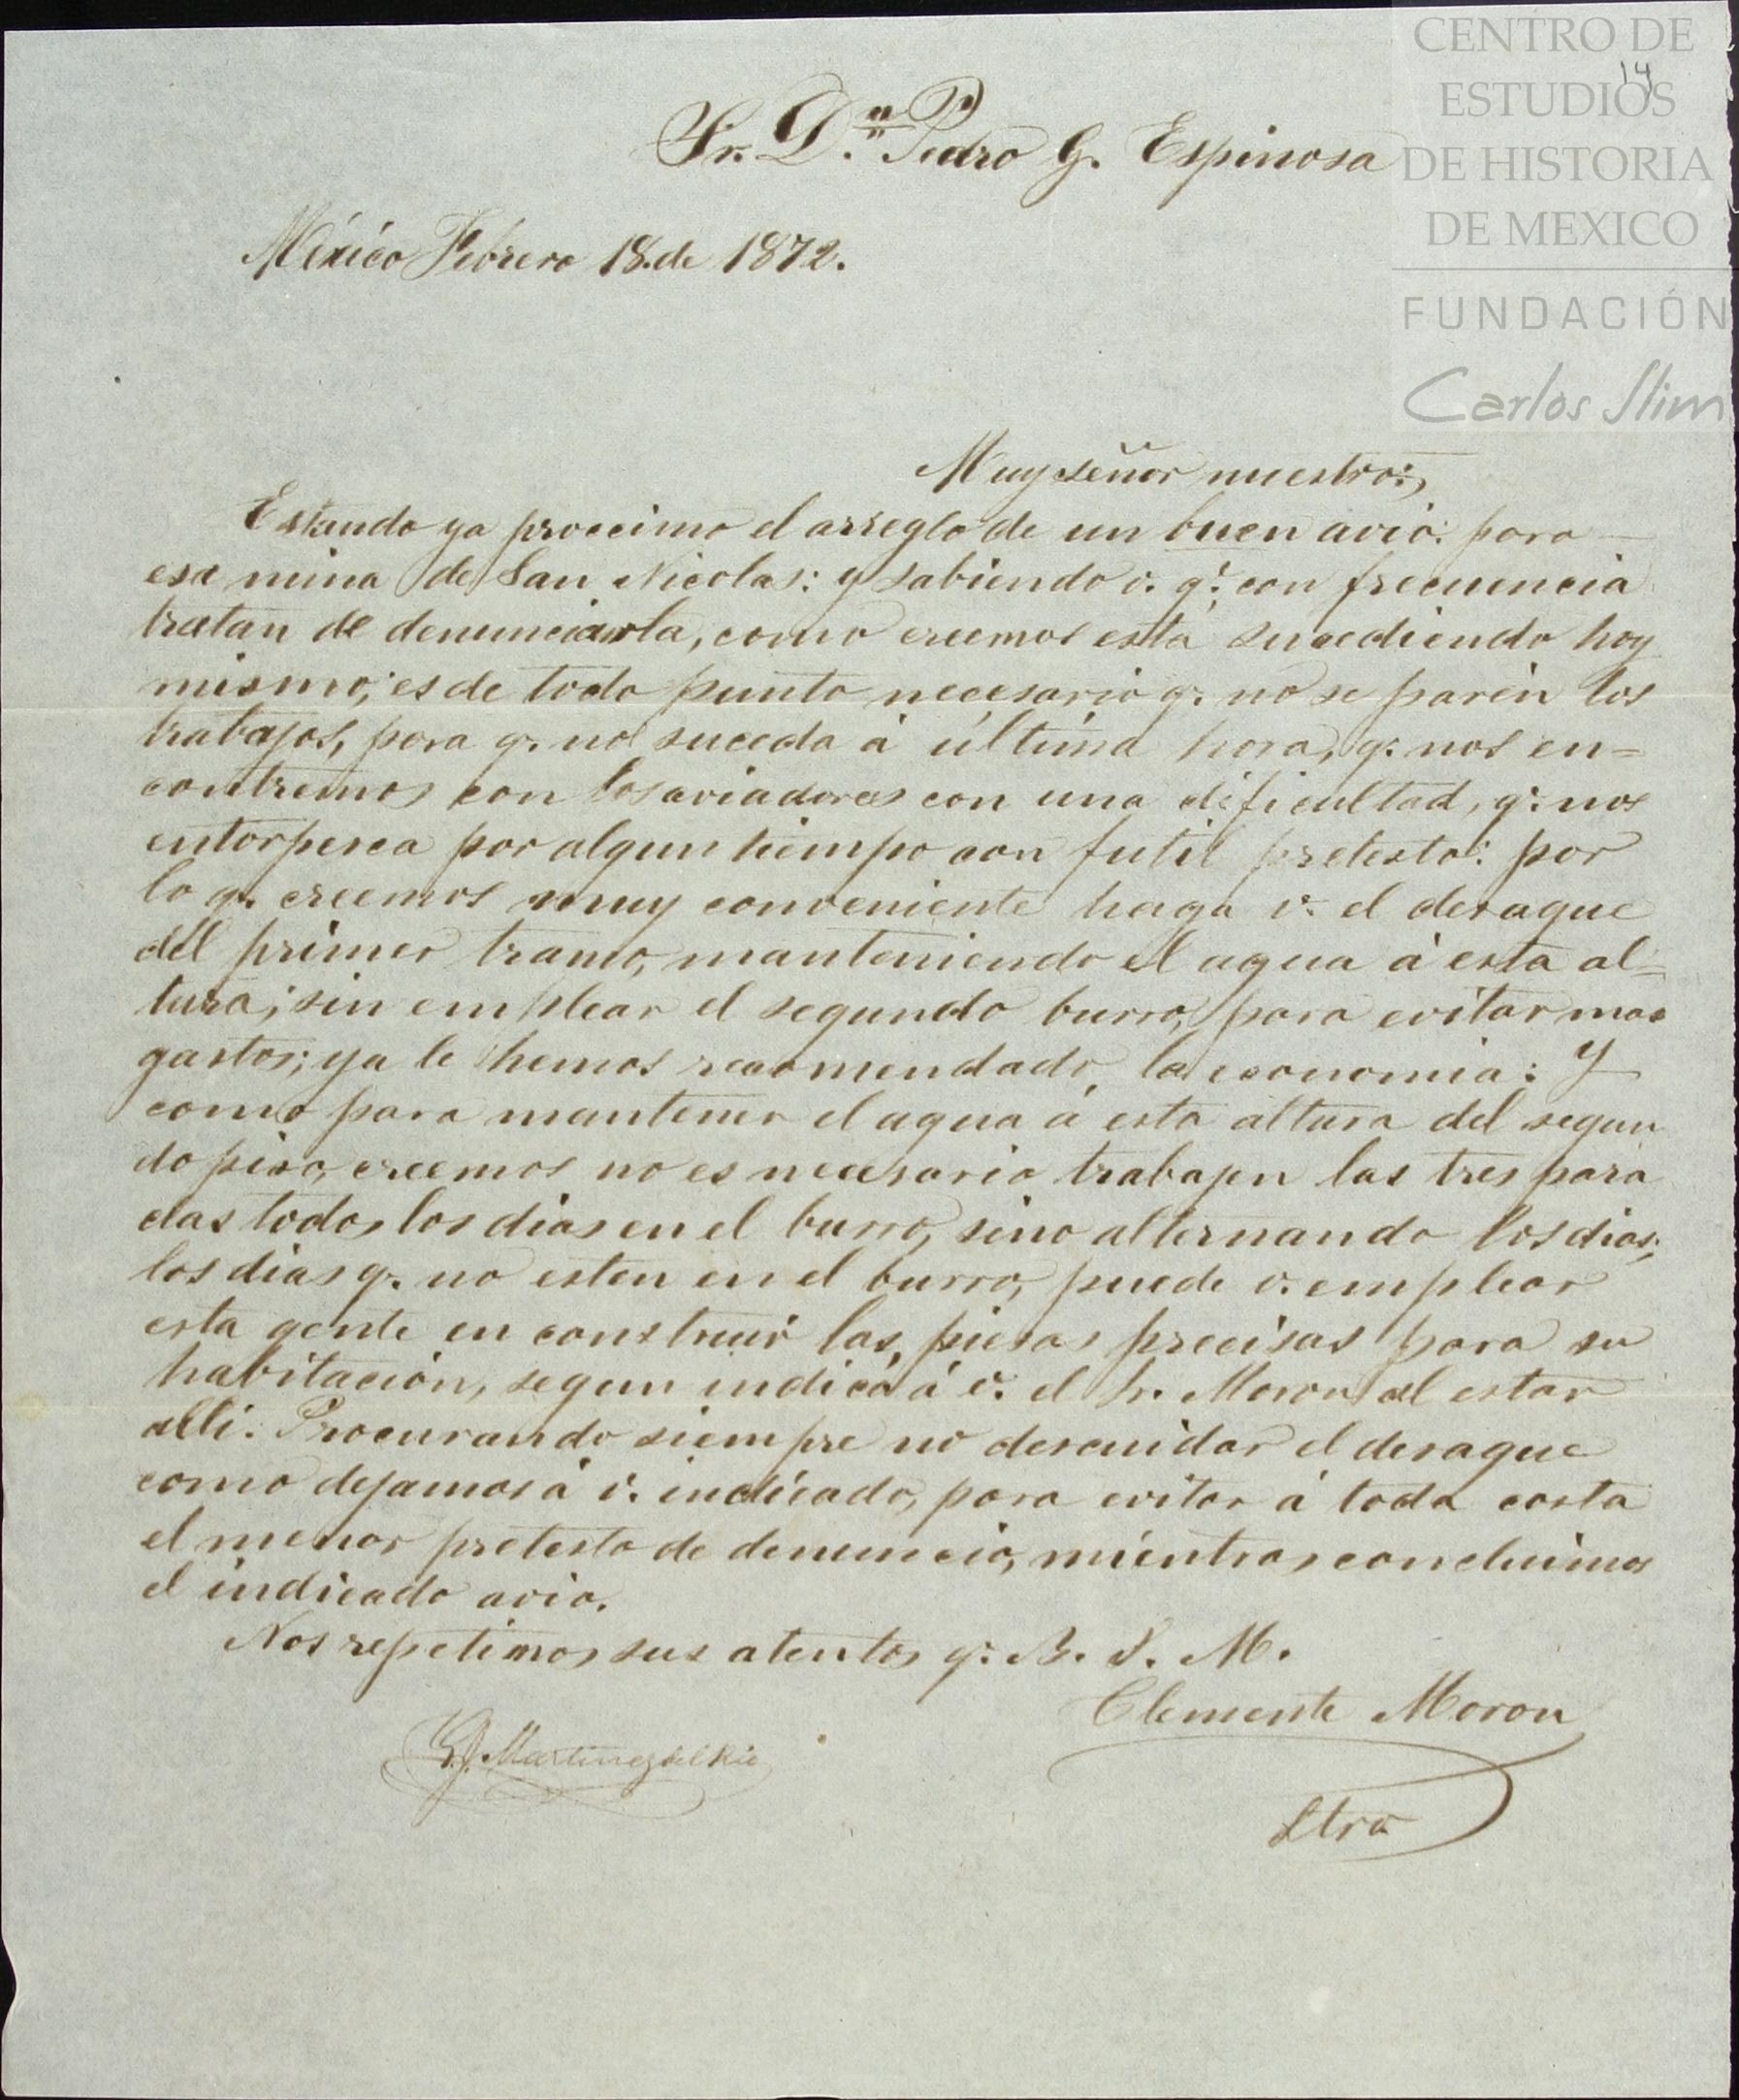 CENTRO DE
ESTUDIOS
DE HISTORIA
DE MEXICO
FUNDACIÓN
Carlos Slim
14
Sr. D.ⁿ Pedro G. Espinosa
México Febrero 18. de 1872.
Muy señor nuestro:,
Estando ya proccimo el arreglo de un buen avio: para
esa mina de San Nicolas: y sabiendo v. q.º con frecuencia
tratan de denunciarla, como creemos está sucediendo hoy
mismo; es de todo punto necesario q. no se paren los
trabajos, para q. no suceda á última hora, q. nos en=
contremos con los aviadores con una dificultad, q. nos
entorpesca por algun tiempo con futil pretesto: por
lo q. creemos muy conveniente haga v. el desague
del primer tramo, manteniendo el agua á esta al=
tura; sin emplear el segundo burro, para evitar mas
gastos; ya le hemos recomendado, la economia: Y
como para mantener el agua á esta altura del segun
do piso, creemos no es necesario trabajen las tres para
das todos los dias en el burro, sino alternando los dias;
los dias q. no esten en el burro, puede v. emplear
esta gente en construir las, piesas precisas para su
habitación, segun indicó á v. el Sr. Moron al estar
alli: Procurando siempre no descuidar el desague
como dejamos á v. indicado, para evitar á toda costa
el menor pretesto de denuncio, mientras concluimos
el indicado avio.
Nos repetimos sus atentos q. B. S. M.
Clemente Moron